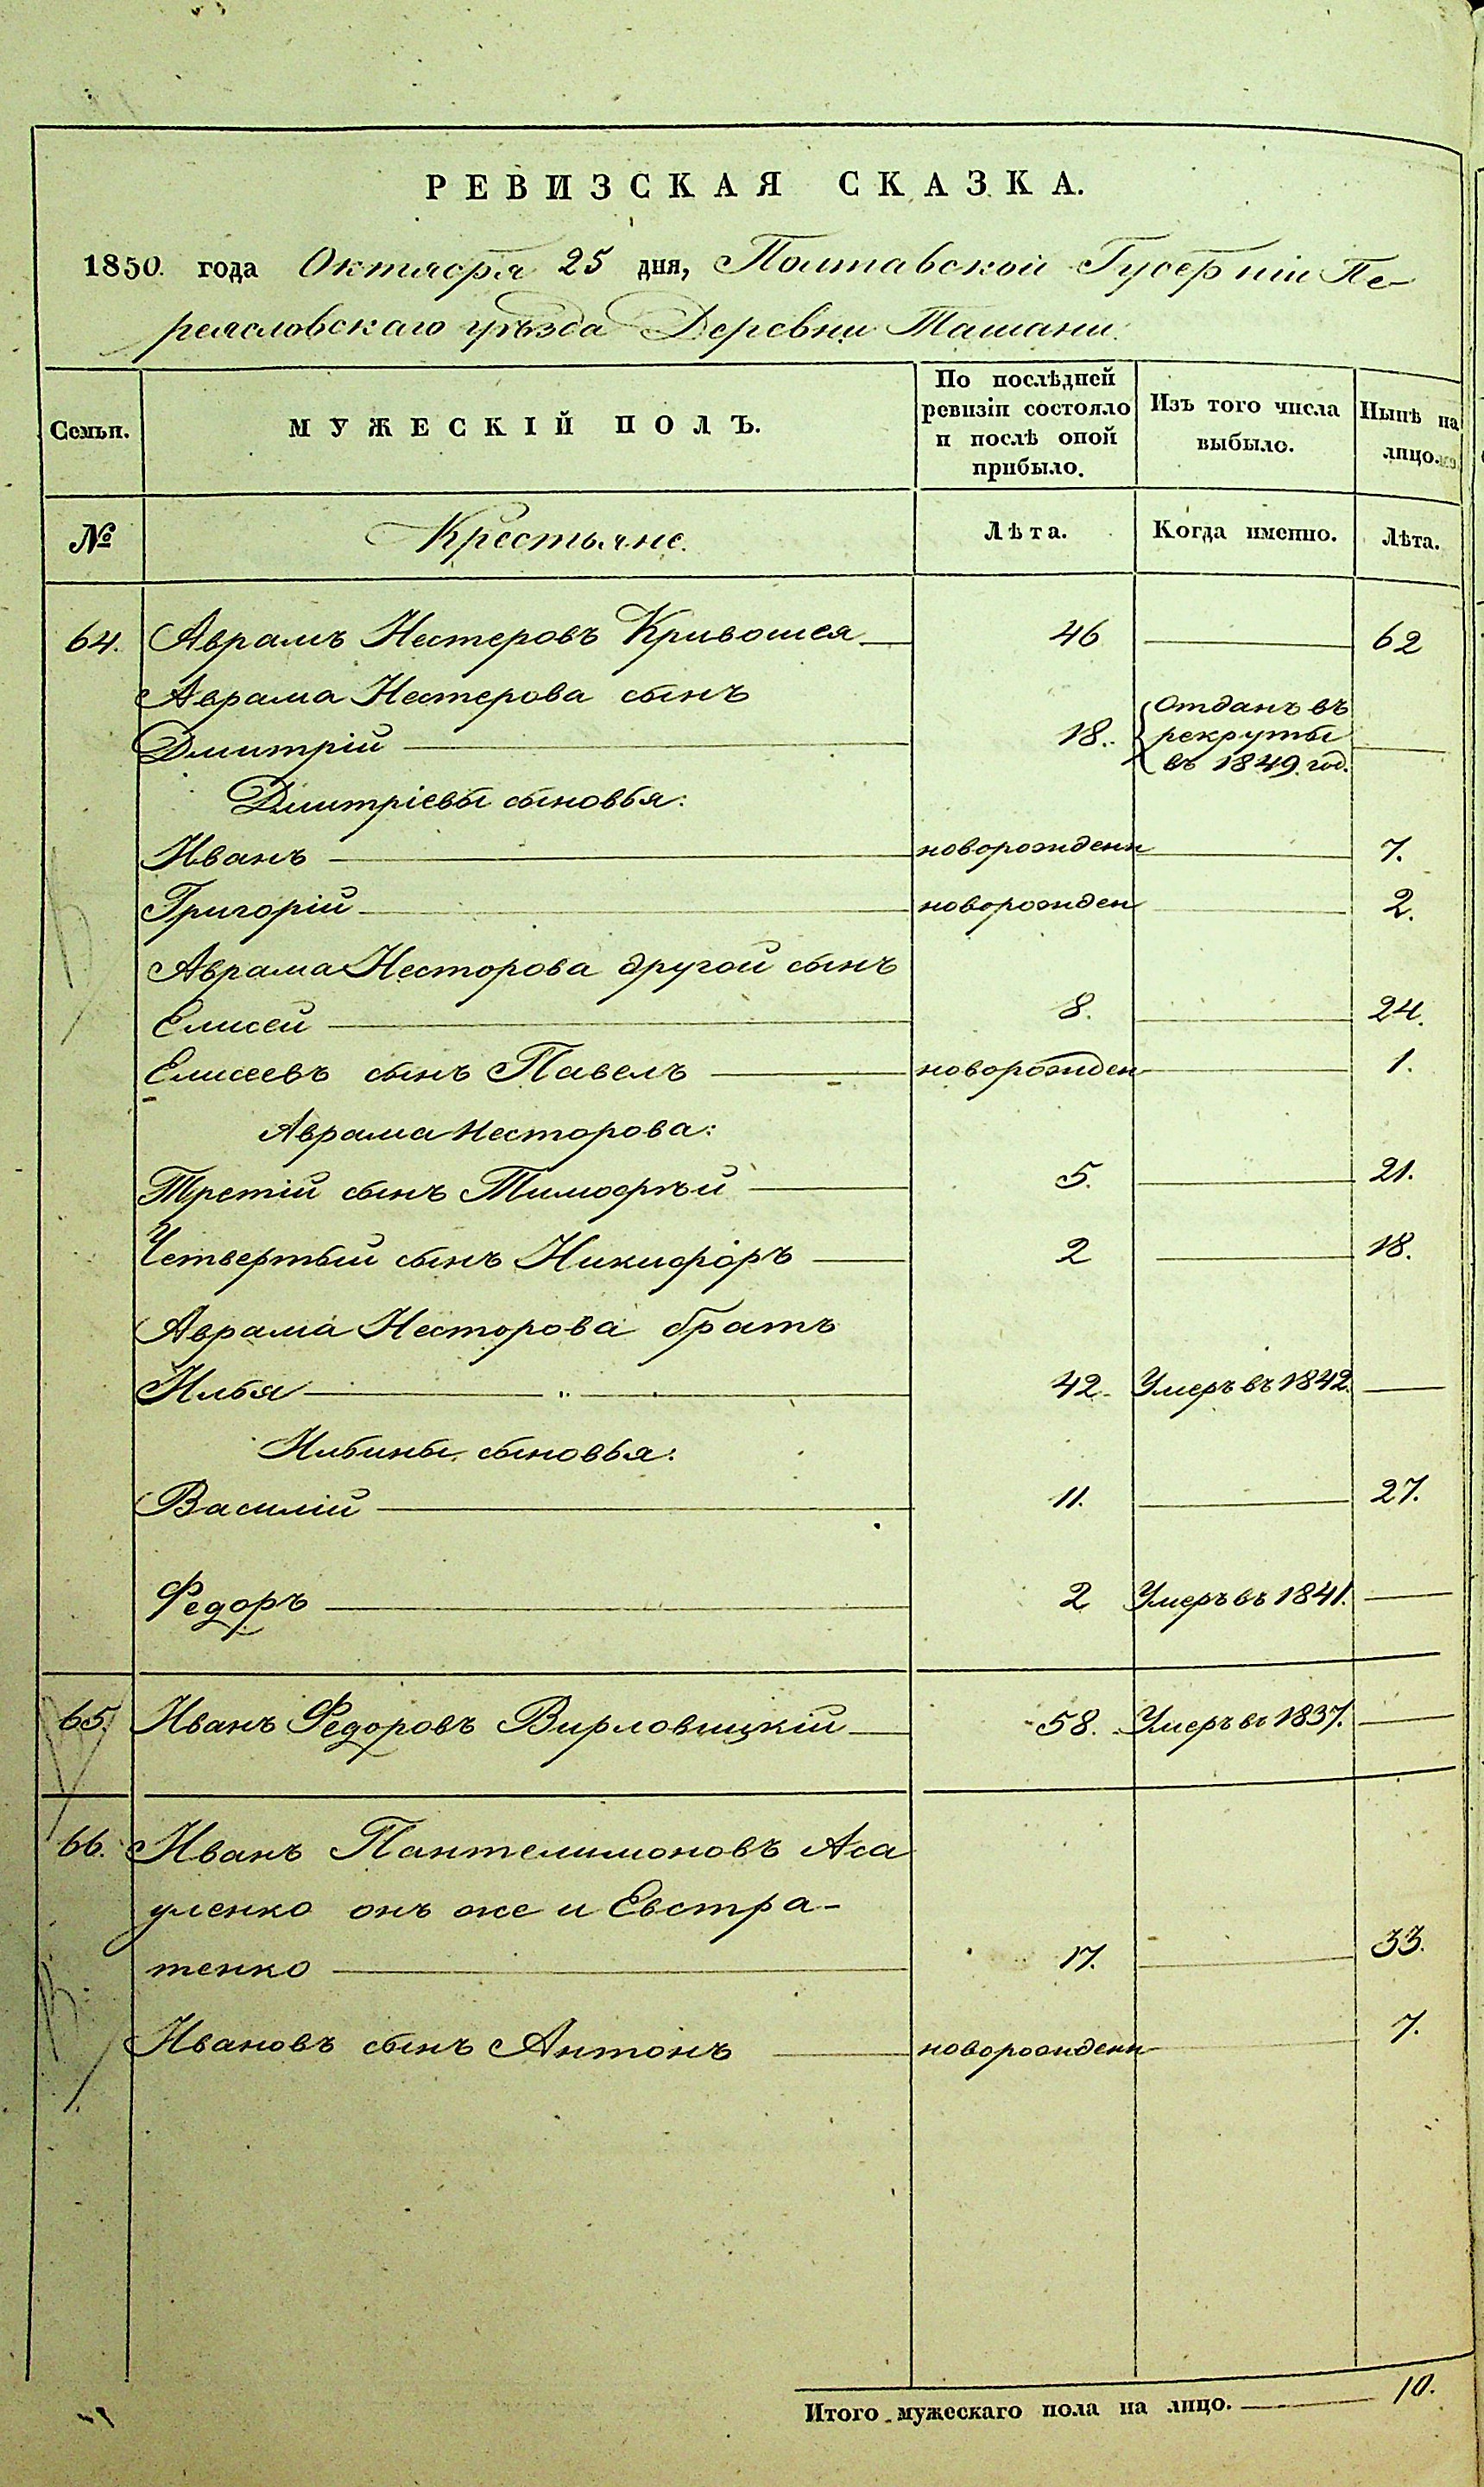 РЕВИЗСКАЯ СКАЗКА.
1850. года Октября 25 дня, Полтавской Губерніи Пе-
реяславскаго уѣзда Деревни Ташани.
Семьи. МУЖЕСКІЙ ПОЛЪ. По послѣдней ревизіи состояло и послѣ оной прибыло. Изъ того числа выбыло. Нынѣ на лицо.
№ Крестьяне. Лѣта. Когда именно. Лѣта.
64. Аврамъ Нестеровъ Кривошея 46 62
Аврама Нестерова сынъ
Дмитрій 18. Отданъ въ рекруты въ 1849. год.
Дмитріевы сыновья:
Иванъ новорожденн 7.
Григорій новорожден 2.
Аврама Несторова другой сынъ
Елисей 8. 24.
Елисеевъ сынъ Павелъ новорожден 1.
Аврама Несторова:
Третій сынъ Тимофѣй 5. 21.
Четвертый сынъ Никифоръ 2 18.
Аврама Несторова братъ
Илья 42. Умеръ въ 1842.
Ильины сыновья:
Василій 11. 27.
Федоръ 2 Умеръ въ 1841.
65. Иванъ Федоровъ Вирловицкій 58. Умеръ въ 1837.
66. Иванъ Пантелимоновъ Аса
уленко онъ же и Евстра-
тенко 17. 33.
Ивановъ сынъ Антонъ новорожденн 7.
Итого мужескаго пола на лицо. 10.